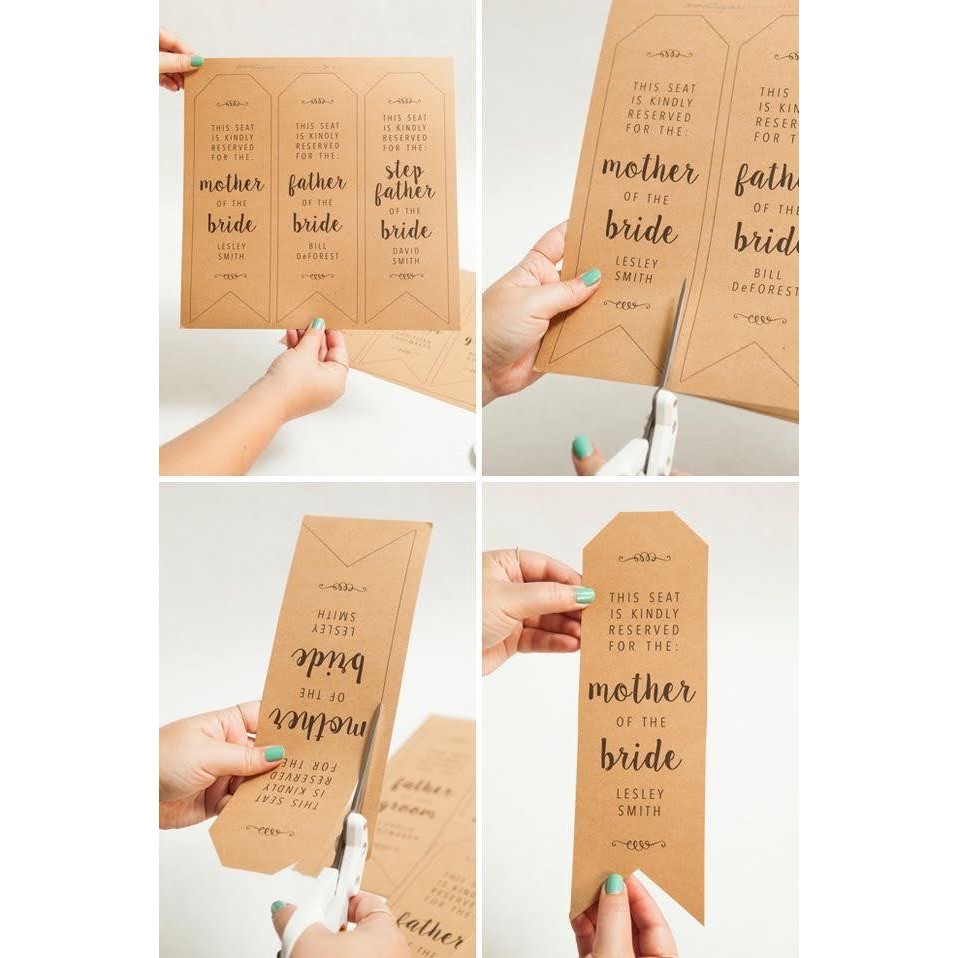 THIS SEAT
IS KINDLY
RESERVED
FOR THE:
mother
OF THE
bride
LESLEY
SMITH
THIS SEAT
IS KINDLY
RESERVED
FOR THE:
father
OF THE
bride
BILL
DeFOREST
THIS SEAT
IS KINDLY
RESERVED
FOR THE:
step
father
OF THE
bride
DAVID
SMITH
THIS SEAT
IS KINDLY
RESERVED
FOR THE:
mother
OF THE
bride
LESLEY
SMITH
THIS
IS KIN
RESER
FOR T
fathe
OF THE
bride
BILL
DeFOREST
THIS SEAT
IS KINDLY
RESERVED
FOR THE
mother
OF THE
bride
LESLEY
SMITH
father
groom
father
THIS SEAT
IS KINDLY
RESERVED
FOR THE:
mother
OF THE
bride
LESLEY
SMITH